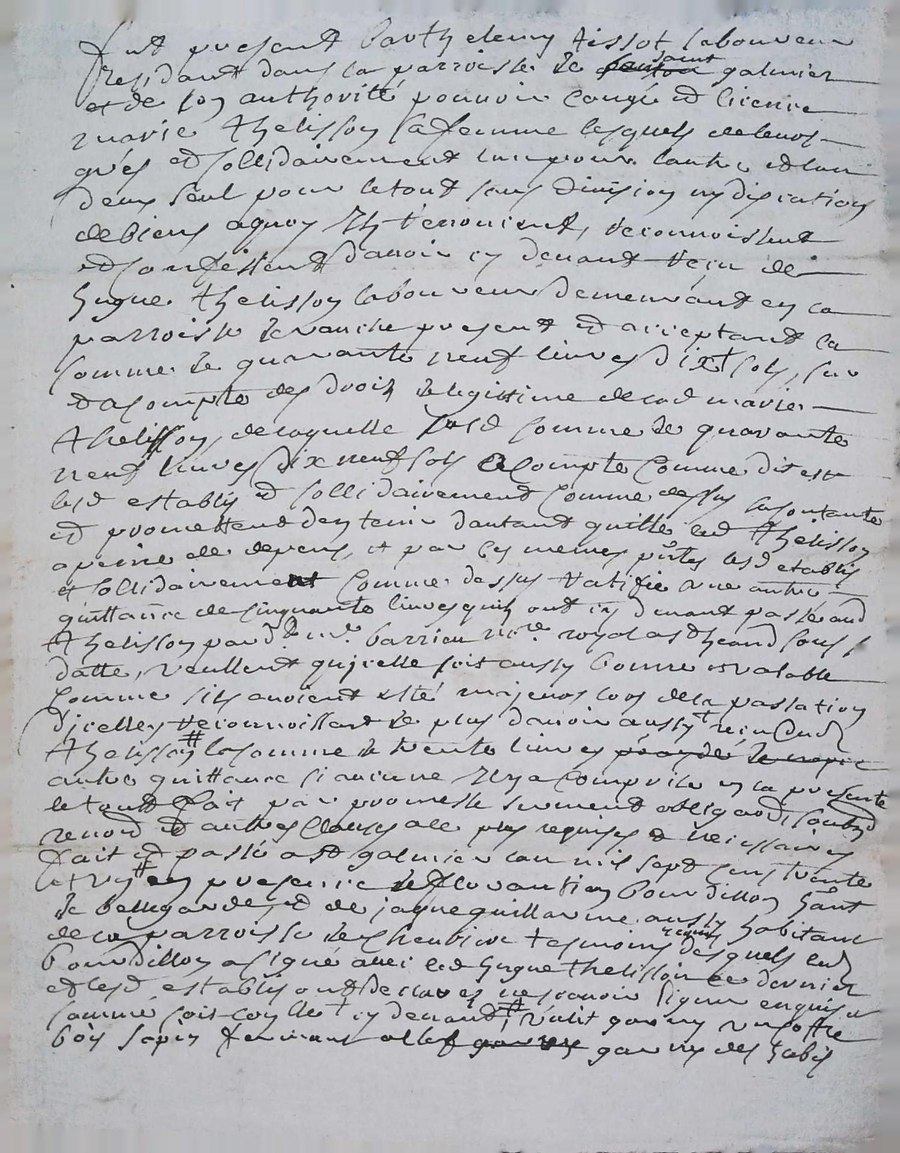 fut present Barthelemy tissot laboureur
Residant dans la parroisse de saint galmier
et de son authoritté pouvoir congé et licence
marie thelisson sa femme lesquels de leurs
grés et sollidairement lun pour lautre et lun
deux seul pour le tout sans division ny discution
de biens a quoy Ils renoncient, reconnoissent
et confessent davoir cy devant reçu de
hugue thelisson laboureur demeurant en la
parroisse de present et acceptant la
somme de quarante neuf livres dix sols, sur
et a compte des droits de legittime de lad marie
thelisson, de laquelle susd somme de quarante
neuf livres dix neuf sols a compte comme dit est
lesd establis et sollidairement comme dessus se contante
et promettent den tenir dautant quitte led thelisson
a peine de depens, et par ces memes pntes lesd etablis
et sollidairement comme dessus ratifie une autre
quittance de cinquante livres quils ont cy devant passé aud
thelisson pard. royal a st heand sous
datte, veullent quicelle soit aussy bonne et valable
comme sils avoient esté majeurs lors de la passation
dicelle, reconnoissant de plus davoir aussy reçu dud
thelisson la somme de trente livres
autre quittance si aucune Il y a comprise en la presente
le tout fait par promesse serment obligaon soubzon
renon et autres clauses a ce plus requises et necessaires
fait et passé a st galmier lan mil sept cens trente
et en presence de Bourdillon hant
de bellegarde et de jaque guillarme aussy habitant
de la parroisse de tesmoins requis desquels led
Bourdillon a signé avec led hugue thelisson ce dernier
et lesd establis ont declarés ne scavoir signer enquis et
sommé soit conllé cy devant garny un coffre
bois sapin fermant a clef garny des habis